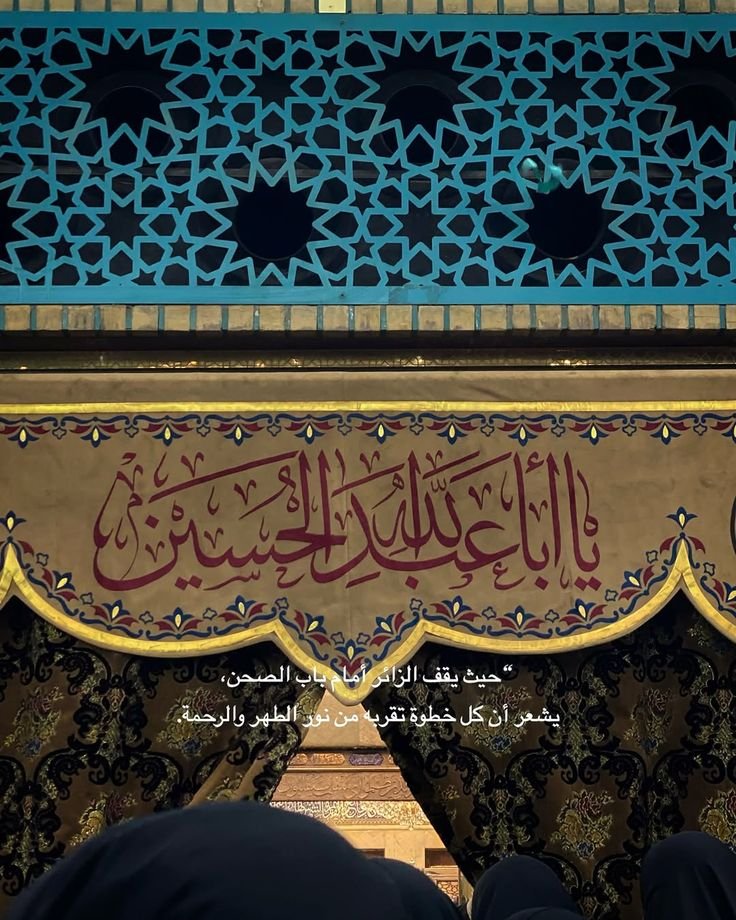 يا أبا عبدالله الحسين
“حيث يقف الزائر أمام باب الصحن،
يشعر أن كل خطوة تقربه من نور الطهر والرحمة.